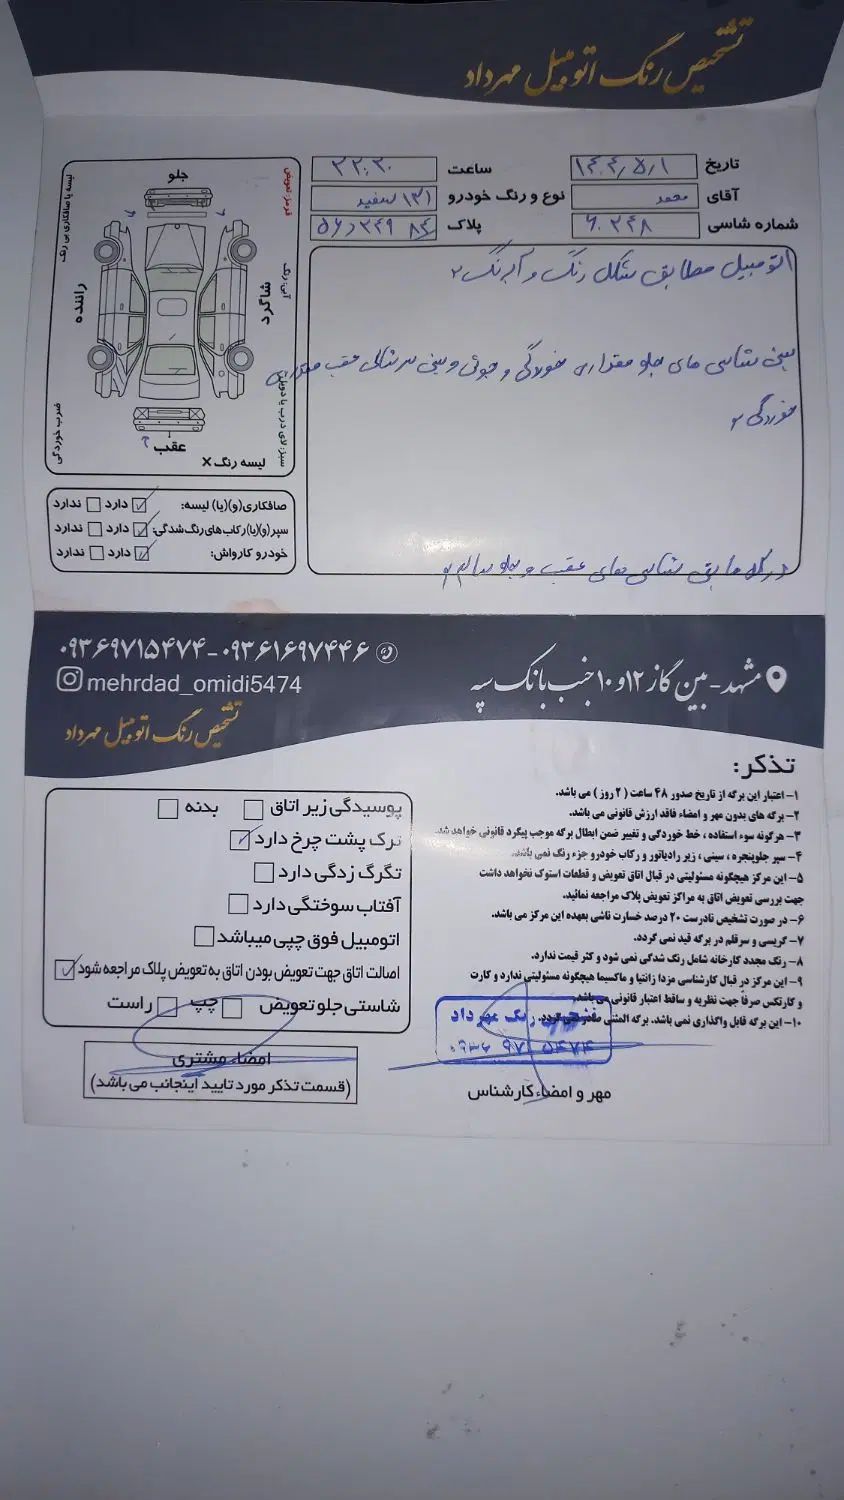 تشخیص رنگ اتومبیل مهرداد
تاریخ ۱۴۰۴/۵/۱ ساعت ۲۲:۳۰
آقای محمد نوع و رنگ خودرو ۱۳۱ سفید
شماره شاسی ۶۰۲۴۸ پلاک
اتومبیل مطابق شکل رنگ و آبرنگ
سینی شاسی های جلو مقداری خوردگی و جوش و سینی سر شاسی عقب مقداری
خوردگی
در کل مابقی شاسی های عقب و جلو سالم
جلو
عقب
راننده
شاگرد
لیسه یا صافکاری بی رنگ
قرمز: تعویض
آبی: رنگ
ضرب خوردگی
لیسه رنگ X
صافکاری(و)(یا) لیسه: دارد ندارد
سپر(و)(یا)رکاب‌های رنگ‌شدگی: دارد ندارد
خودرو کارواش: دارد ندارد
مشهد - بین گاز ۱۲و۱۰ جنب بانک سپه
۰۹۳۶۹۷۱۵۴۷۴-۰۹۳۶۱۶۹۷۴۴۶
mehrdad_omidi5474
تشخیص رنگ اتومبیل مهرداد
تذکر:
۱- اعتبار این برگه از تاریخ صدور ۴۸ ساعت (۲ روز) می باشد.
۲- برگه های بدون مهر و امضاء فاقد ارزش قانونی می باشد.
۳- هرگونه سوء استفاده، خط خوردگی و تغییر ضمن ابطال برگه موجب پیگرد قانونی خواهد شد.
۴- سپر جلوپنجره، سینی، زیر رادیاتور و رکاب خودرو جزء رنگ نمی باشد.
۵- این مرکز هیچگونه مسئولیتی در قبال اتاق تعویض و قطعات استوک نخواهد داشت
جهت بررسی تعویض اتاق به مراکز تعویض پلاک مراجعه نمائید.
۶- در صورت تشخیص نادرست ۲۰ درصد خسارت ناشی بعهده این مرکز می باشد.
۷- گریسی و سرقلم در برگه قید نمی گردد.
۸- رنگ مجدد کارخانه شامل رنگ شدگی نمی شود و کثر قیمت ندارد.
۹- این مرکز در قبال کارشناسی مزدا زانتیا و ماکسیما هیچگونه مسئولیتی ندارد و کارت
و کارتکس صرفاً جهت نظریه و ساقط اعتبار قانونی می باشد.
۱۰- این برگه قابل واگذاری نمی باشد. برگه المثنی صادر نمی گردد.
مهر و امضاء کارشناس
پوسیدگی زیر اتاق بدنه
ترک پشت چرخ دارد
تگرگ زدگی دارد
آفتاب سوختگی دارد
اتومبیل فوق چپی میباشد
اصالت اتاق جهت تعویض بودن اتاق به تعویض پلاک مراجعه شود
شاستی جلو تعویض چپ راست
امضاء مشتری
(قسمت تذکر مورد تایید اینجانب می باشد)